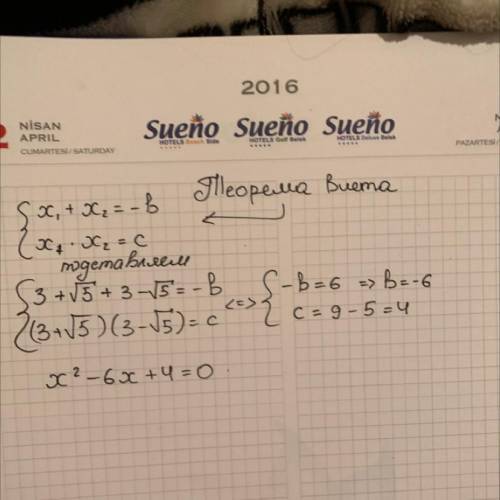 2016
2 NİSAN
APRIL
CUMARTESİ / SATURDAY
Sueño
HOTELS Beach Side
Sueño
HOTELS Golf Belek
Sueño
HOTELS Deluxe Belek
PAZARTESİ /
Теорема Виета
x₁ + x₂ = -b
x₁ · x₂ = c
подставляем
3 + √5 + 3 - √5 = -b <=> -b = 6 => b = -6
(3+√5)(3-√5) = c c = 9 - 5 = 4
x² - 6x + 4 = 0